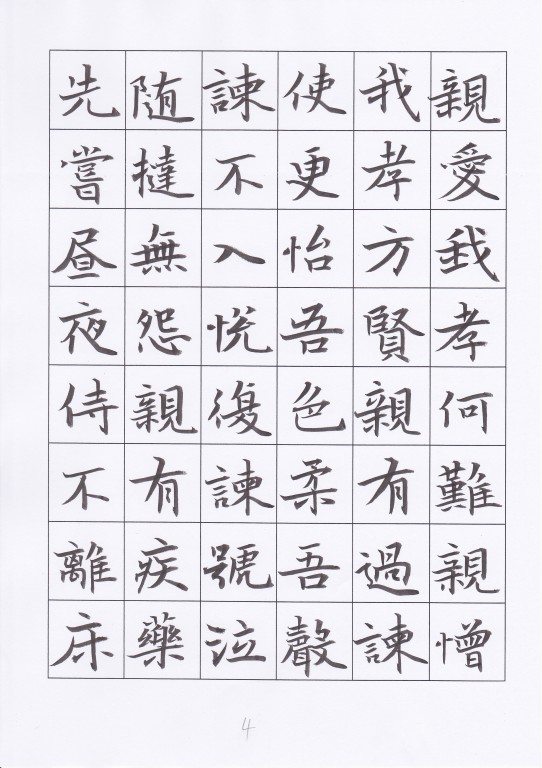 親愛我孝何難親憎
我孝方賢親有過諫
使更怡吾色柔吾聲
諫不入悦復諫號泣
随撻無怨親有疾藥
先嘗昼夜侍不離床
4